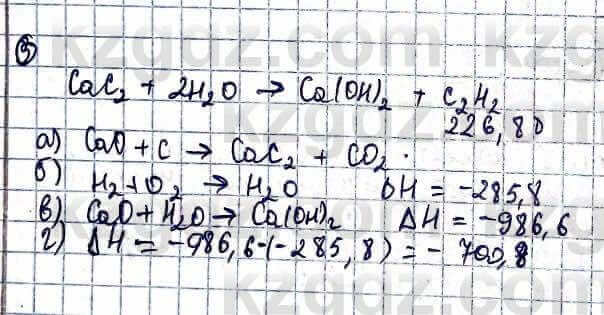 ⑤
CaC₂ + 2H₂O → Ca(OH)₂ + C₂H₂
226,80
а) CaO + C → CaC₂ + CO₂.
б) H₂ + O₂ → H₂O ΔH = -285,8
в) CaO + H₂O → Ca(OH)₂ ΔH = -986,6
г) ΔH = -986,6-(-285,8) = - 700,8
kzgdz.com